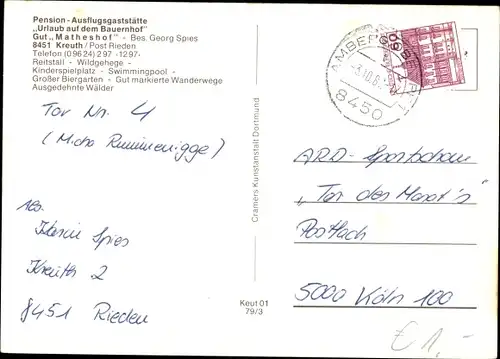 Pension - Ausflugsgaststätte
"Urlaub auf dem Bauernhof"
Gut „Matheshof" - Bes. Georg Spies
8451 Kreuth / Post Rieden
Telefon (09624) 297 -1297-
Reitstall - Wildgehege -
Kinderspielplatz - Swimmingpool -
Großer Biergarten - Gut markierte Wanderwege
Ausgedehnte Wälder
Tor Nr. 4
(Micha Rummenigge)
Abs.
Spies
Kreuth 2
8451 Rieden
Cramers Kunstanstalt Dortmund
Keut 01
79/3
AMBERG
8450
60
ARD - Sportschau
„Tor des Monat's"
Postfach
5000 Köln 100
€ 1,-